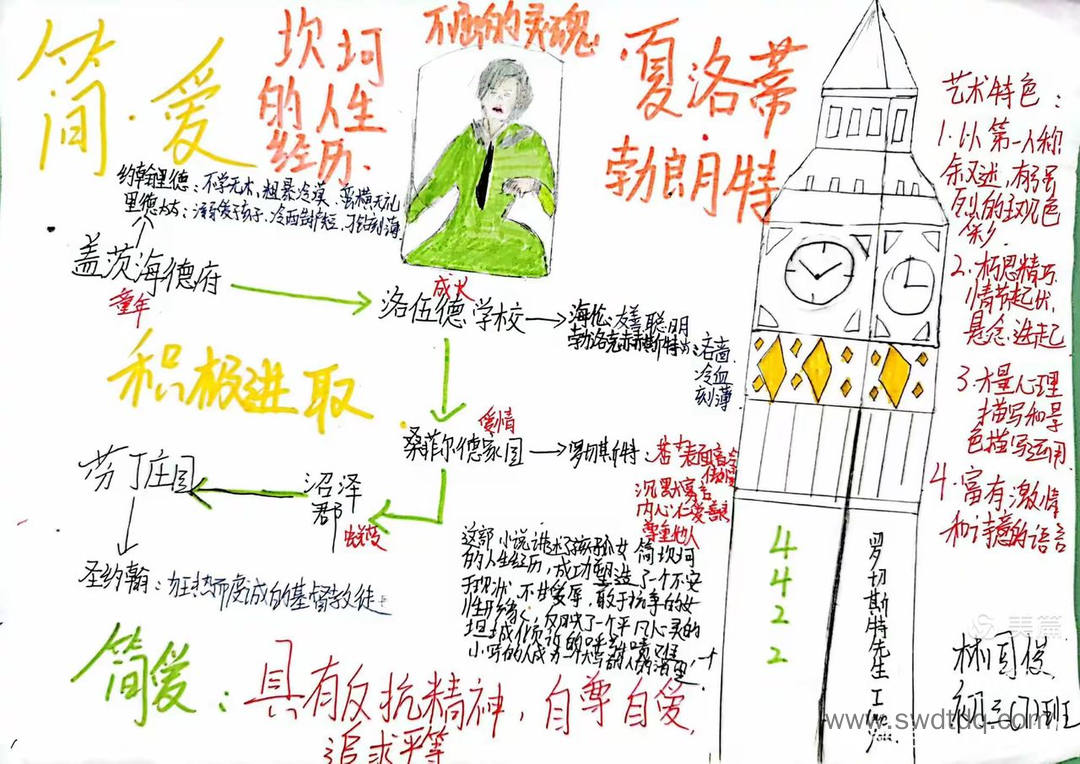 简·爱
坎坷
的人生
经历
不屈的灵魂
夏洛蒂
勃朗特
约翰里德：不学无术、粗暴冷漠、蛮横无礼
里德太太：溺爱孩子、冷酷刻薄
盖茨海德府
童年
成长
洛伍德学校
海伦：友善聪明
勃洛克赫斯特：吝啬
冷血
刻薄
积极进取
爱情
桑菲尔德家园
罗切斯特：
沉默寡言
内心仁爱善良
尊重他人
芬丁庄园
沼泽
郡
圣约翰：狂热而虔诚的基督教徒
这部小说讲述了孤女简坎坷
的人生经历，成功塑造了一个不安
于现状，不甘受辱，敢于抗争的女
性形象，反映了一个平凡心灵的
坦诚倾诉
简爱：具有反抗精神，自尊自爱，
追求平等
4
4
2
2
罗切斯特先生 I love you
艺术特色：
1.以第一人称
叙述，有强
烈的主观色
彩
2.构思精巧
情节起伏
悬念迭起
3.大量心理
描写和景
色描写运用
4.富有激情
和诗意的语言
初三(7)班
美篇
www.swdtdq.com